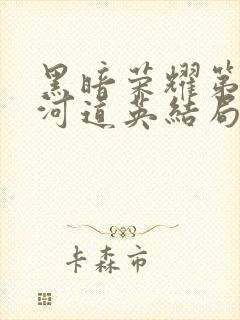 黑暗荣耀第
河道英结局
卡森市